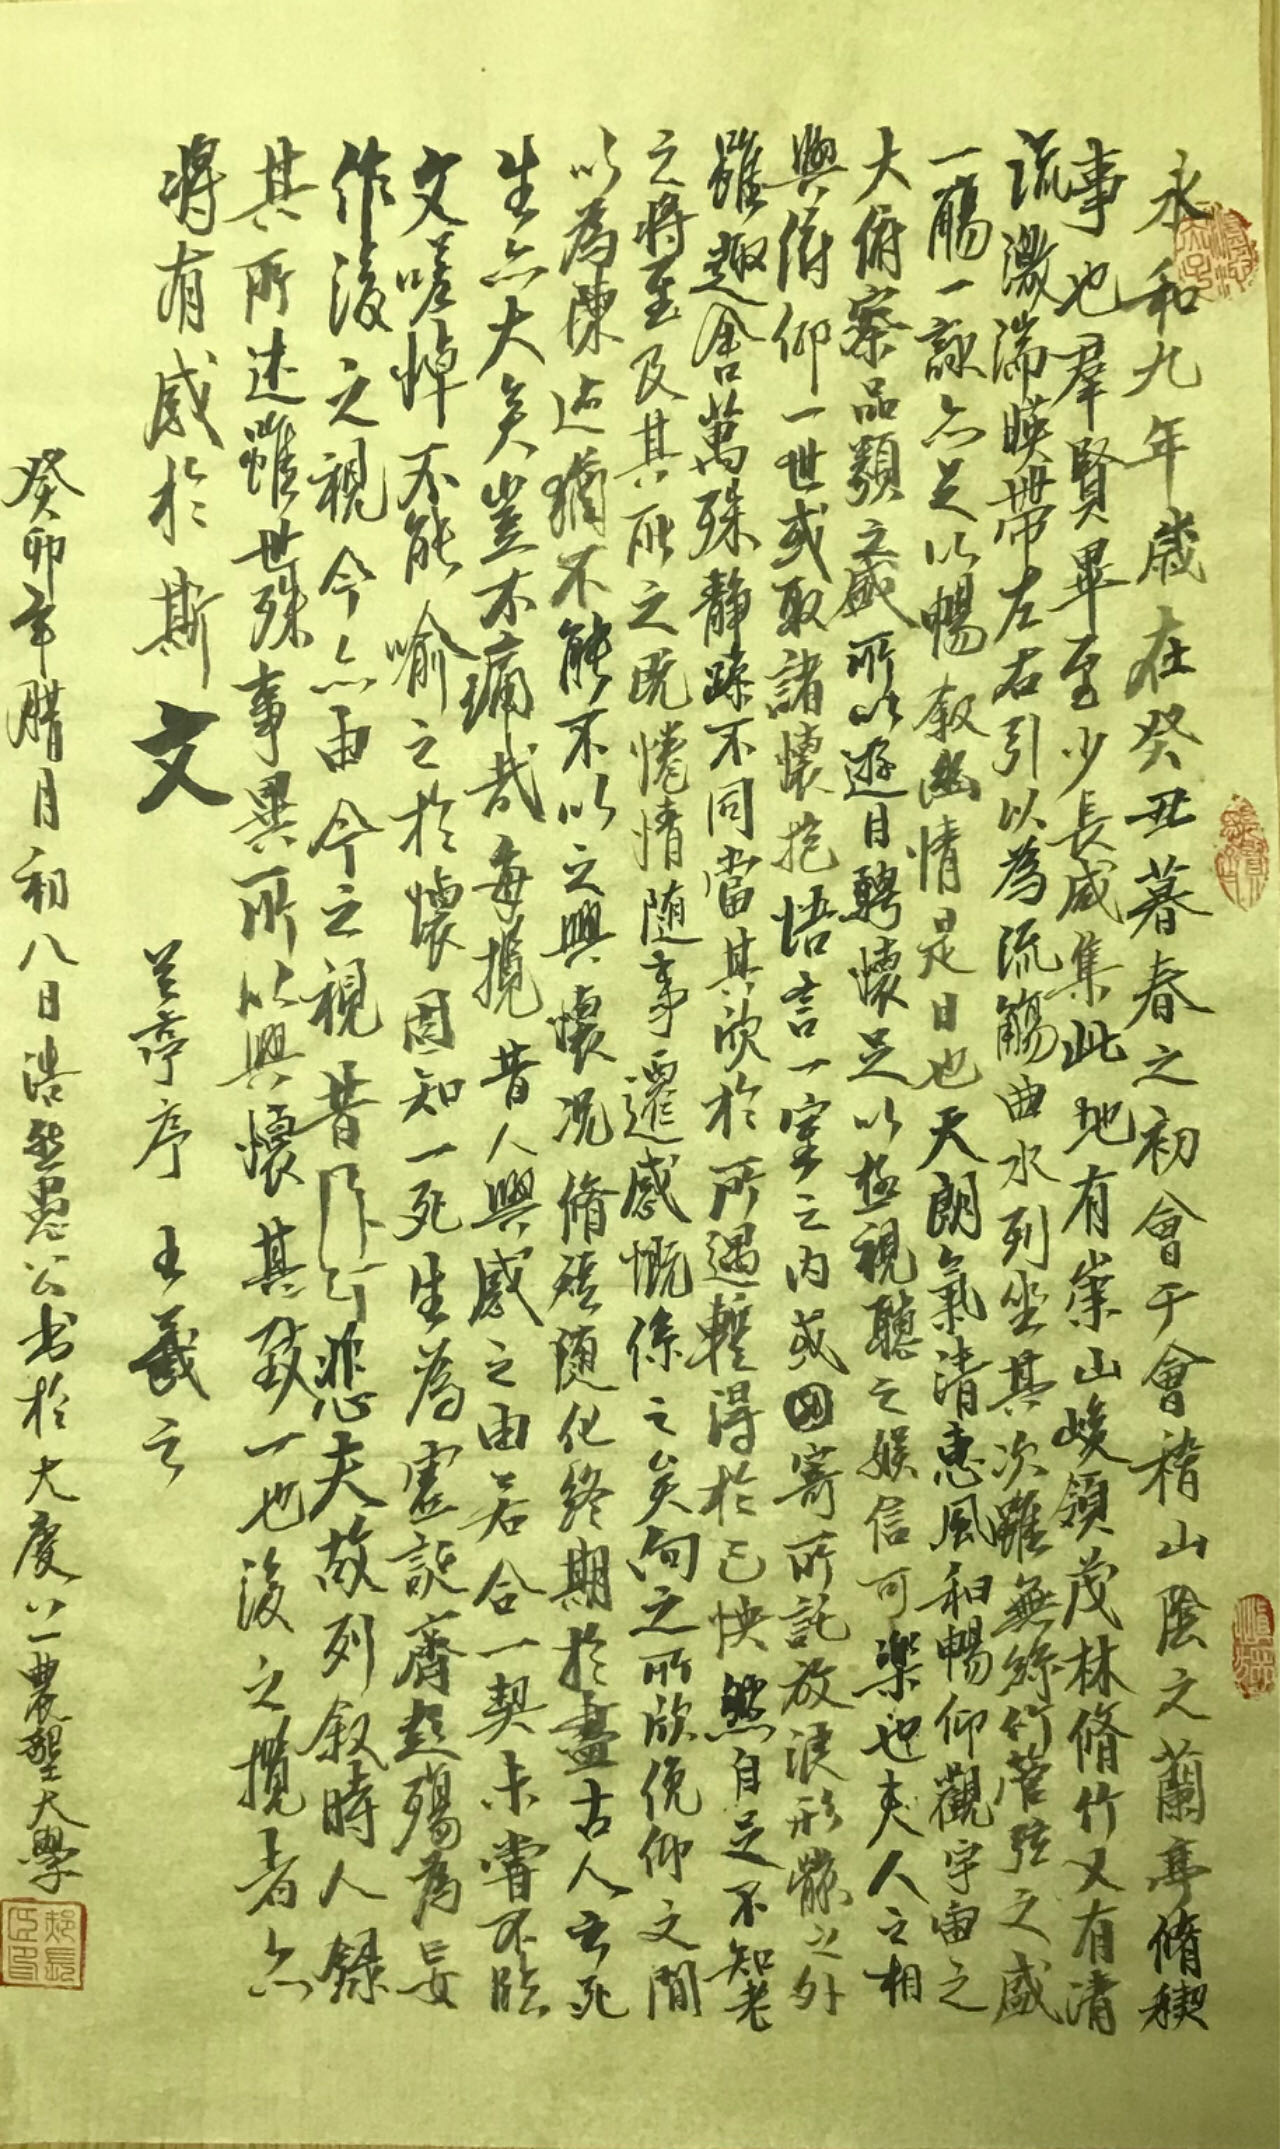 永和九年歲在癸丑暮春之初會于會稽山陰之蘭亭脩稧
事也羣賢畢至少長咸集此地有崇山峻領茂林脩竹又有清
流激湍暎帶左右引以為流觴曲水列坐其次雖無絲竹管弦之盛
一觴一詠亦足以暢敘幽情是日也天朗氣清惠風和暢仰觀宇宙之
大俯察品類之盛所以遊目騁懷足以極視聽之娛信可樂也夫人之相
與俯仰一世或取諸懷抱悟言一室之內或因寄所託放浪形骸之外
雖趣舍萬殊靜躁不同當其欣於所遇暫得於己快然自足不知老
之將至及其所之既惓情隨事遷感慨係之矣向之所欣俛仰之間
以為陳迹猶不能不以之興懷況脩短隨化終期於盡古人云死
生亦大矣豈不痛哉每攬昔人興感之由若合一契未嘗不臨
文嗟悼不能喻之於懷固知一死生為虛誕齊彭殤為妄
作後之視今亦由今之視昔悲夫故列敘時人錄
其所述雖世殊事異所以興懷其致一也後之攬者亦
將有感於斯文
蘭亭序 王羲之
癸卯年腊月初八日浩然愚公书於大慶八一農墾大學